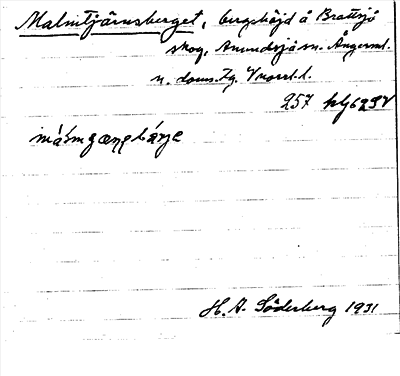 Malmtjärnsberget, bergshöjd å Brattsjö
skog, Anundsjö sn. Ångerml.
n. doms. Tg. Vnorrl. l.
257
H. A. Söderberg 1931